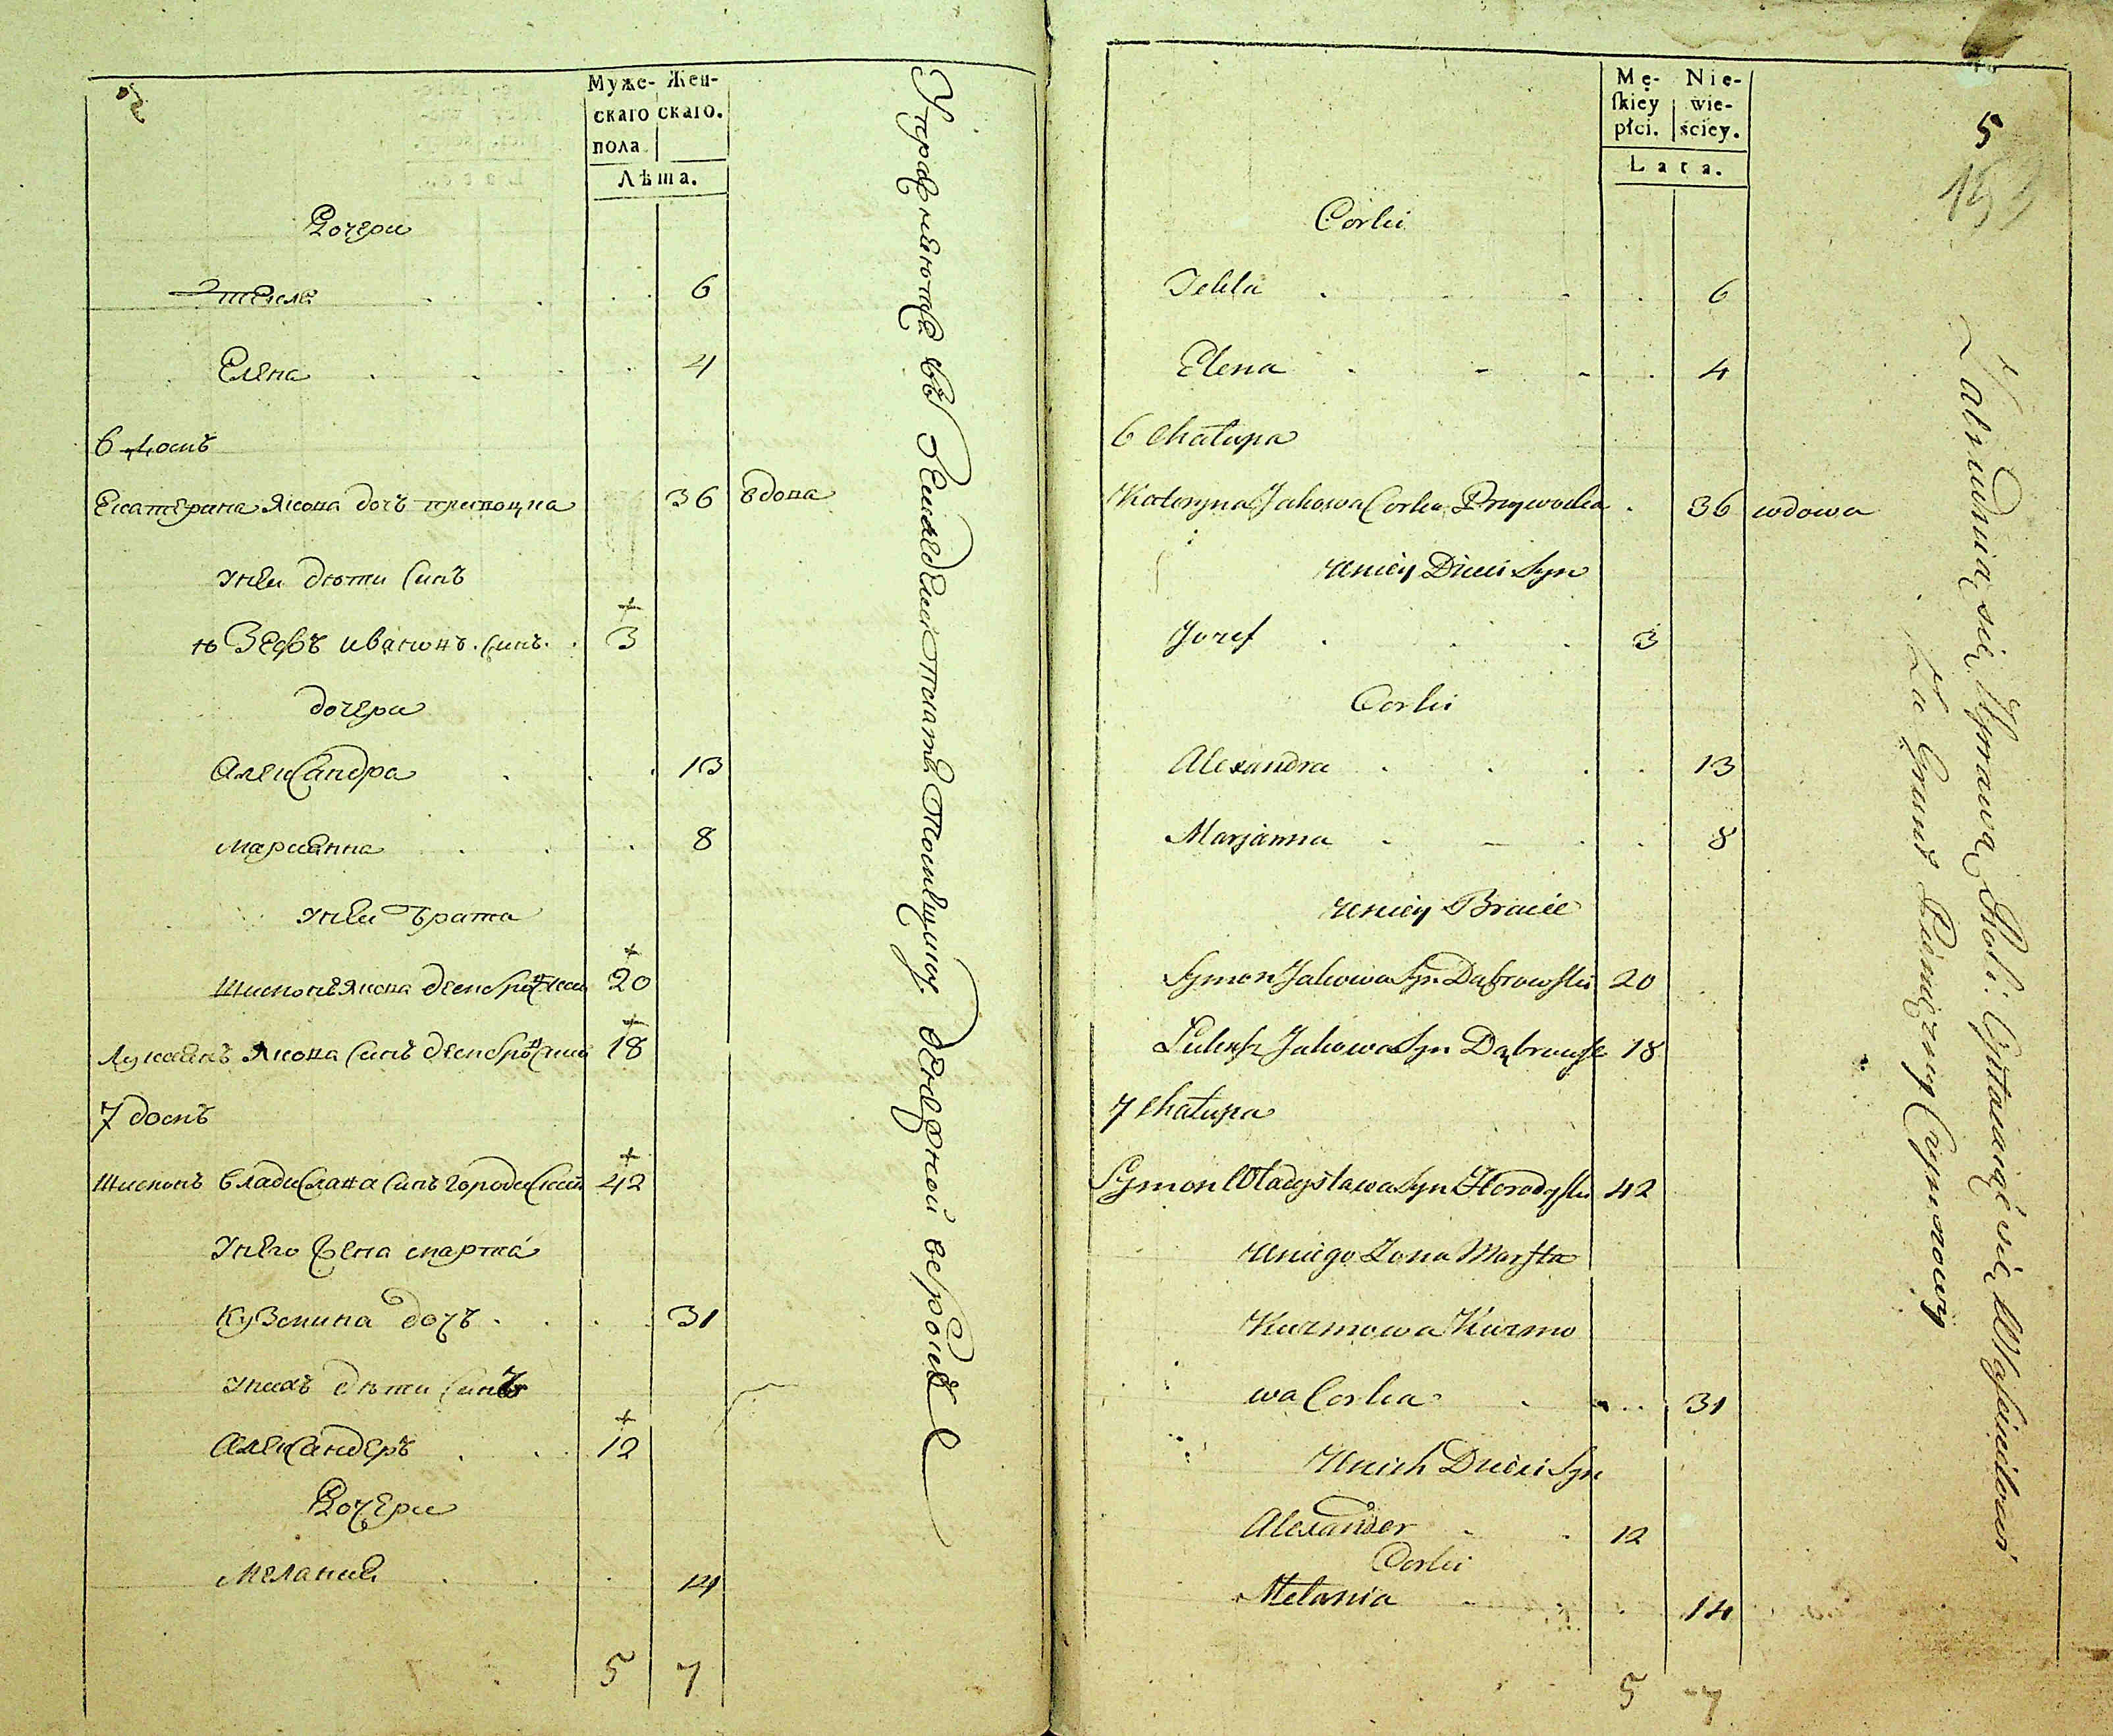 Муже- Жен-
скаго скаго.
пола
Лѣта.
Дочери
Текля 6
Елена 4
6 домъ
Екатерина Якова дочь 36 вдова
унеи дѣти синъ
юзефъ ивановъ синъ 3
дочери
Александра 13
марианна 8
унеи брата
Шимонъ Якова 20
Лукашъ Якова синъ 18
7 домъ
Шимонъ владислава синъ городиский 42
унего жена марта
Кузмина дочъ 31
унихъ дѣти синъ
александеръ 12
Дочери
мелания 14
5 7
Упражняются въ земледелии
Mę- Nie-
ſkiey wie-
płci. ściey.
Lata.
5
Corki
Tekla 6
Elena 4
6 Chałupa
Kateryna Jakowa Corka 36 wdowa
uniey Dzieci Syn
Jozef 3
Corki
Alexandra 13
Marjanna 8
uniey Bracie
Symon Jakowa Syn Dąbrowſki 20
Lukaſz Jakowa Syn Dąbrowſk 18
7 Chałupa
Symon Władysława Syn Horodyſki 42
uniego Zona Marſta
Kuzmowa Kuzmo
wa Corka 31
unich Dzieci Syn
Alexander 12
Corki
Melania 14
5 7
Zatrudnia się Uprawą Roli
za Grunt Pieniężny Czynszowy